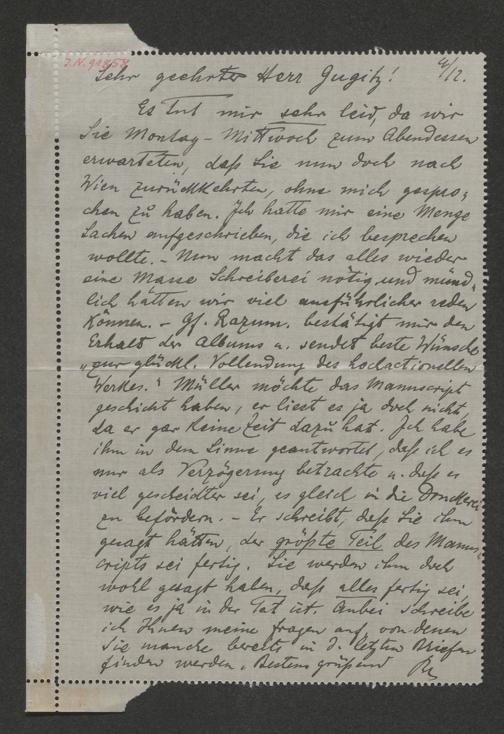 J.N. 91858
4/12.
Sehr geehrter Herr Gugitz!
Es tut mir sehr leid, da wir
Sie Montag - Mittwoch zum Abendessen
erwarteten, daß Sie nun doch nach
Wien zurückkehrten, ohne mich gespro-
chen zu haben. Ich hatte mir eine Menge
Sachen aufgeschrieben, die ich besprechen
wollte. - Nun macht das alles wieder
eine Masse Schreiberei nötig, und münd-
lich hätten wir viel ausführlicher reden
können. - Gf. Razum. bestätigt mir den
Erhalt der Albums u. sendet beste Wünsche
„zur glückl. Vollendung des hochactionellen
Werkes." Müller möchte das Manuscript
geschickt haben, er liest es ja doch nicht,
da er gar keine Zeit dazu hat. Ich habe
ihm in dem Sinne geantwortet, daß ich es
nur als Verzögerung betrachte u. daß es
viel gescheidter sei, es gleich in die Druckerei
zu befördern. - Er schreibt, daß Sie ihm
gesagt hätten, der größte Teil des Manus-
cripts sei fertig. Sie werden ihm doch
wohl gesagt haben, daß alles fertig sei,
wie es ja in der Tat ist. Anbei schreibe
ich Ihnen meine Fragen auf, von denen
Sie manche bereits in d. letzten Briefen
finden werden. Bestens grüßend